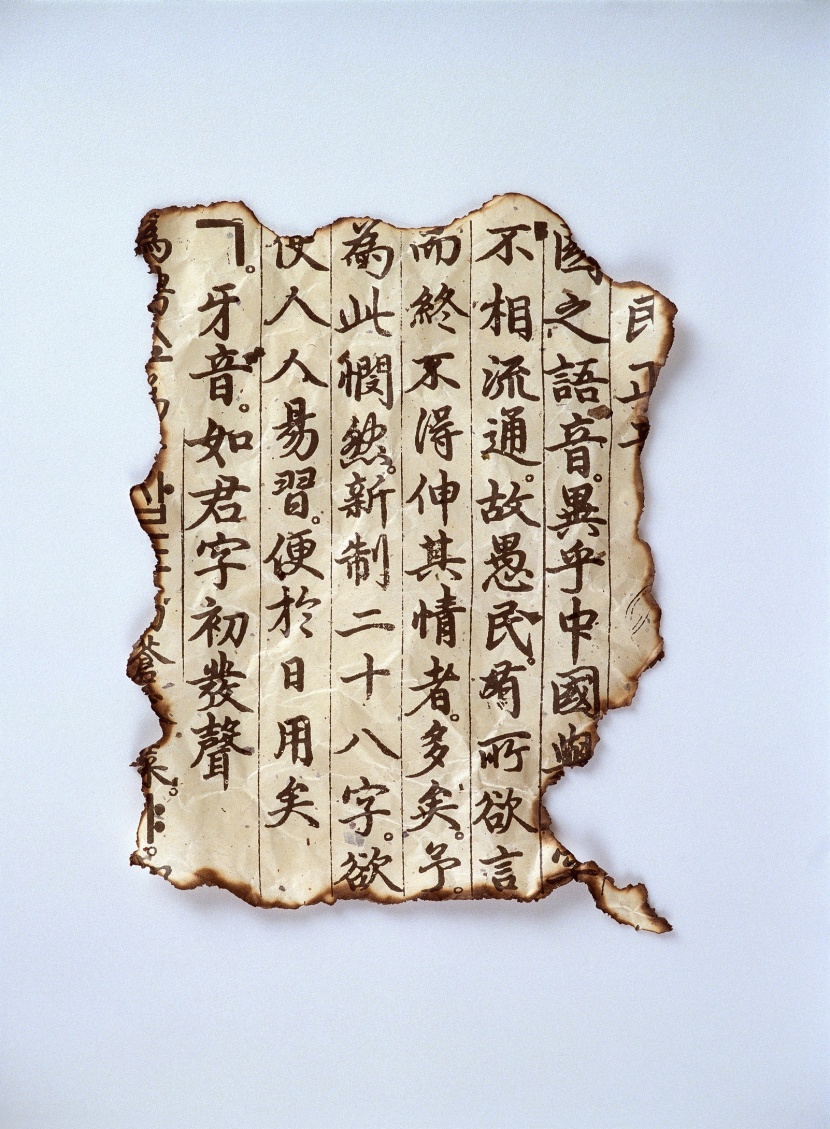 國之語音。異乎中國
不相流通。故愚民。有所欲言
而終不得伸其情者。多矣。予。
為此憫然。新制二十八字。欲
使人人易習。便於日用矣
ㄱ。牙音。如君字初發聲